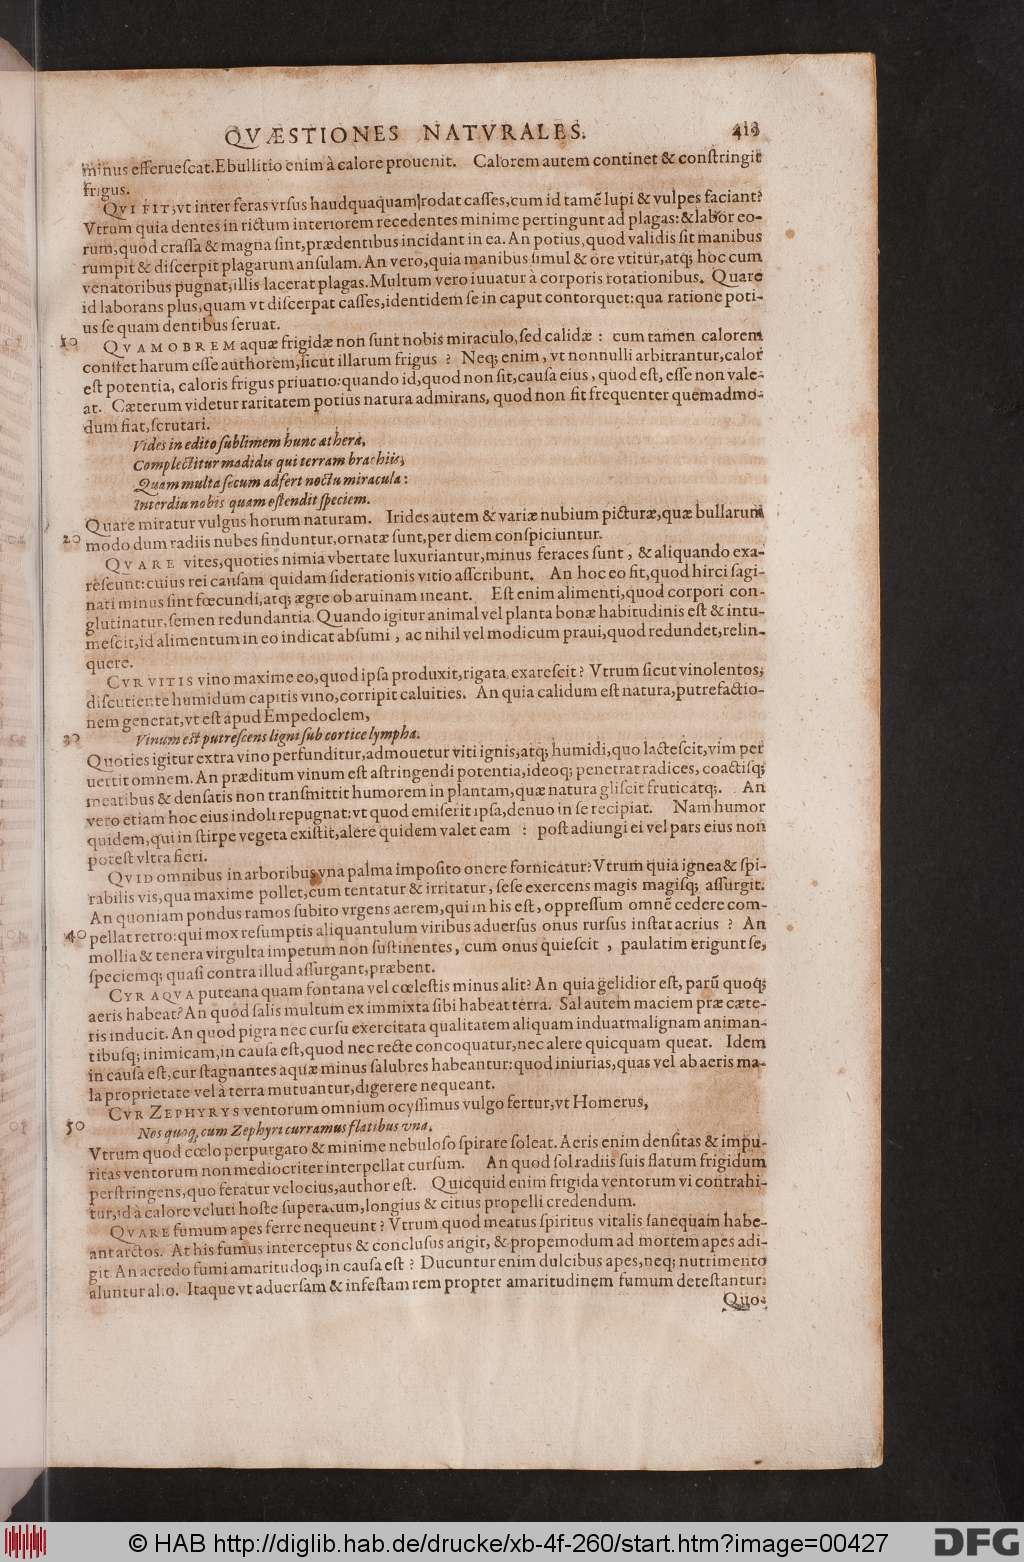 QVÆSTIONES NATVRALES. 413
minus efferueſcat. Ebullitio enim à calore prouenit. Calorem autem continet & conſtringit
frigus.
QVI FIT, vt inter feras vrſus haudquaquam rodat caſſes, cum id tamẽ lupi & vulpes faciant?
Vtrum quia dentes in rictum interiorem recedentes minime pertingunt ad plagas: & labor eo-
rum, quod craſſa & magna ſint, prædentibus incidant in ea. An potius, quod validis ſit manibus
rumpit & diſcerpit plagarum anſulam. An vero, quia manibus ſimul & ore vtitur, atq; hoc cum
venatoribus pugnat, illis lacerat plagas. Multum vero iuuatur à corporis rotationibus. Quare
id laborans plus, quam vt diſcerpat caſſes, identidem ſe in caput contorquet: qua ratione poti-
us ſe quam dentibus ſeruat.
10 QVAMOBREM aquæ frigidæ non ſunt nobis miraculo, ſed calidæ : cum tamen calorem
conſtet harum eſſe authorem, ſicut illarum frigus ? Neq; enim, vt nonnulli arbitrantur, calor
eſt potentia, caloris frigus priuatio: quando id, quod non ſit, cauſa eius, quod eſt, eſſe non vale-
at. Cæterum videtur raritatem potius natura admirans, quod non ſit frequenter quemadmo-
dum fiat, ſcrutari.
Vides in edito ſublimem hunc athera,
Complectitur madidis qui terram brachiis;
Quam multa ſecum adfert noctu miracula:
Interdiu nobis quam oſtendit ſpeciem.
Quare miratur vulgus horum naturam. Irides autem & variæ nubium picturæ, quæ bullarum
20 modo dum radiis nubes finduntur, ornatæ ſunt, per diem conſpiciuntur.
QVARE vites, quoties nimia vbertate luxuriantur, minus feraces ſunt, & aliquando exa-
reſcunt: cuius rei cauſam quidam ſiderationis vitio aſſcribunt. An hoc eo fit, quod hirci ſagi-
nati minus ſint fœcundi, atq; ægre ob aruinam ineant. Eſt enim alimenti, quod corpori con-
glutinatur, ſemen redundantia. Quando igitur animal vel planta bonæ habitudinis eſt & intu-
meſcit, id alimentum in eo indicat abſumi, ac nihil vel modicum praui, quod redundet, relin-
quere.
CVR VITIS vino maxime eo, quod ipſa produxit, rigata exareſcit? Vtrum ſicut vinolentos,
diſcutiente humidum capitis vino, corripit caluities. An quia calidum eſt natura, putrefactio-
nem generat, vt eſt apud Empedoclem,
30 Vinum eſt putreſcens ligni ſub cortice lympha.
Quoties igitur extra vino perfunditur, admouetur viti ignis, atq; humidi, quo lacteſcit, vim per
uertit omnem. An præditum vinum eſt aſtringendi potentia, ideoq; penetrat radices, coactiſq;
meatibus & denſatis non tranſmittit humorem in plantam, quæ natura gliſcit fruticatq;. An
vero etiam hoc eius indoli repugnat: vt quod emiſerit ipſa, denuo in ſe recipiat. Nam humor
quidem, qui in ſtirpe vegeta exiſtit, alere quidem valet eam : poſt adiungi ei vel pars eius non
poteſt vltra fieri.
QVID omnibus in arboribus vna palma impoſito onere fornicatur? Vtrum quia ignea & ſpi-
rabilis vis, qua maxime pollet, cum tentatur & irritatur, ſeſe exercens magis magiſq; aſſurgit.
An quoniam pondus ramos ſubito vrgens aerem, qui in his eſt, oppreſſum omnẽ cedere com-
40 pellat retro: qui mox reſumptis aliquantulum viribus aduerſus onus rurſus inſtat acrius ? An
mollia & tenera virgulta impetum non ſuſtinentes, cum onus quieſcit, paulatim erigunt ſe,
ſpeciemq; quaſi contra illud aſſurgant, præbent.
CVR AQVA puteana quam fontana vel cœleſtis minus alit? An quia gelidior eſt, parũ quoq;
aeris habeat? An quod ſalis multum ex immixta ſibi habeat terra. Sal autem maciem præ cæte-
ris inducit. An quod pigra nec curſu exercitata qualitatem aliquam induat malignam animan-
tibuſq; inimicam, in cauſa eſt, quod nec recte concoquatur, nec alere quicquam queat. Idem
in cauſa eſt, cur ſtagnantes aquæ minus ſalubres habeantur: quod iniurias, quas vel ab aeris ma-
la proprietate vel à terra mutuantur, digerere nequeant.
CVR ZEPHYRVS ventorum omnium ocyſſimus vulgo fertur, vt Homerus,
50 Nos quoq; cum Zephyri curramus flatibus vna.
Vtrum quod cœlo perpurgato & minime nebuloſo ſpirare ſoleat. Aeris enim denſitas & impu-
ritas ventorum non mediocriter interpellat curſum. An quod ſol radiis ſuis flatum frigidum
perſtringens, quo feratur velocius, author eſt. Quicquid enim frigida ventorum vi contrahi-
tur, id à calore veluti hoſte ſuperatum, longius & citius propelli credendum.
QVARE fumum apes ferre nequeunt? Vtrum quod meatus ſpiritus vitalis ſanequam habe-
ant arctos. At his fumus interceptus & concluſus angit, & propemodum ad mortem apes adi-
git. An acredo fumi amaritudoq; in cauſa eſt? Ducuntur enim dulcibus apes, neq; nutrimento
aluntur alio. Itaque vt aduerſam & infeſtam rem propter amaritudinem fumum deteſtantur:
Quo-
© HAB http://diglib.hab.de/drucke/xb-4f-260/start.htm?image=00427 DFG